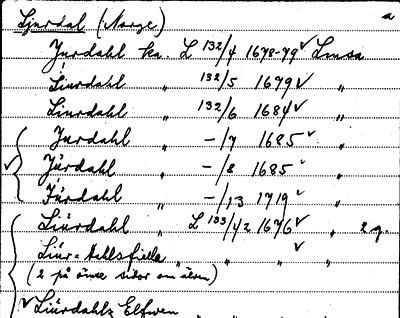 Ljurdal (Norge) a
Jurdahl ka. L 132/4 1678-79 ✓ Lmsa
Liurdahl „ 132/5 1679 ✓ „
Liurdahl „ 132/6 1684 ✓ „
Jurdahl „ -/7 1685 ✓ „
Jürdahl „ -/8 1685 ✓ „
✓ Jürdahl „ -/13 1719 ✓ „
Liürdahl „ L 133/42 1676 ✓ „ 2 g.
Liür= „ „ „ ✓ „
(2 på ömse sidor om älven)
✓ Liürdahlz Elfwen „ „ „